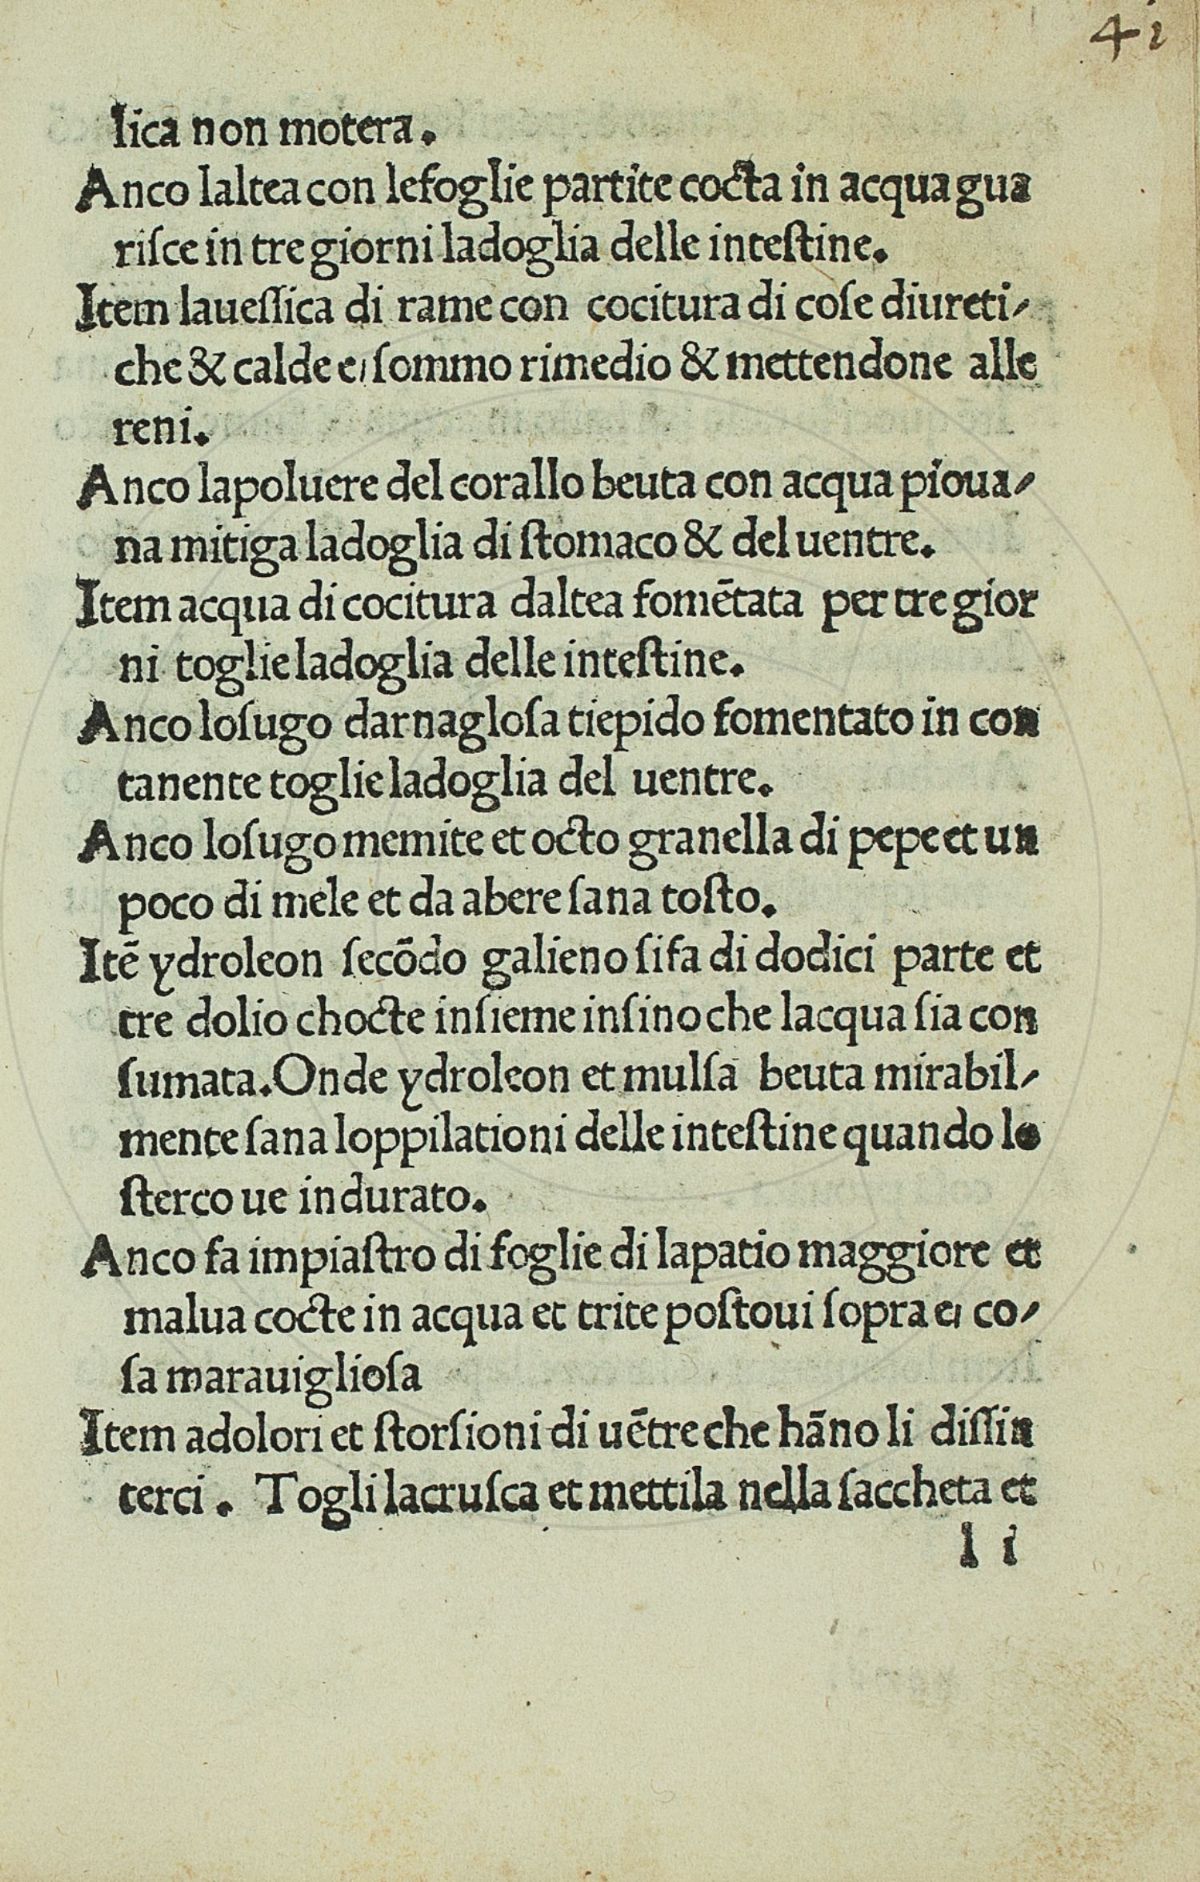 41
lica non motera.
Anco laltea con lefoglie partite cocta in acqua gua
riſce in tre giorni ladoglia delle inteſtine.
Item laueſſica di rame con cocitura di coſe diureti/
che & calde e, ſommo rimedio & mettendone alle
reni.
Anco lapoluere del corallo beuta con acqua pioua/
na mitiga ladoglia di ſtomaco & del uentre.
Item acqua di cocitura daltea fomētata per tre gior
ni toglie ladoglia delle inteſtine.
Anco loſugo darnagloſa tiepido fomentato in con
tanente toglie ladoglia del uentre.
Anco loſugo memite et octo granella di pepe et un
poco di mele et da abere ſana toſto.
Itē ydroleon ſecōdo galieno ſifa di dodici parte et
tre dolio chocte inſieme inſino che lacqua ſia con
ſumata. Onde ydroleon et mulſa beuta mirabil/
mente ſana loppilationi delle inteſtine quando lo
ſterco ue indurato.
Anco fa impiaſtro di foglie di lapatio maggiore et
malua cocte in acqua et trite poſtoui ſopra e, co/
ſa marauiglioſa
Item adolori et ſtorſioni di uētre che hāno li diſſin
terci. Togli lacruſca et mettila nella ſaccheta et
l i